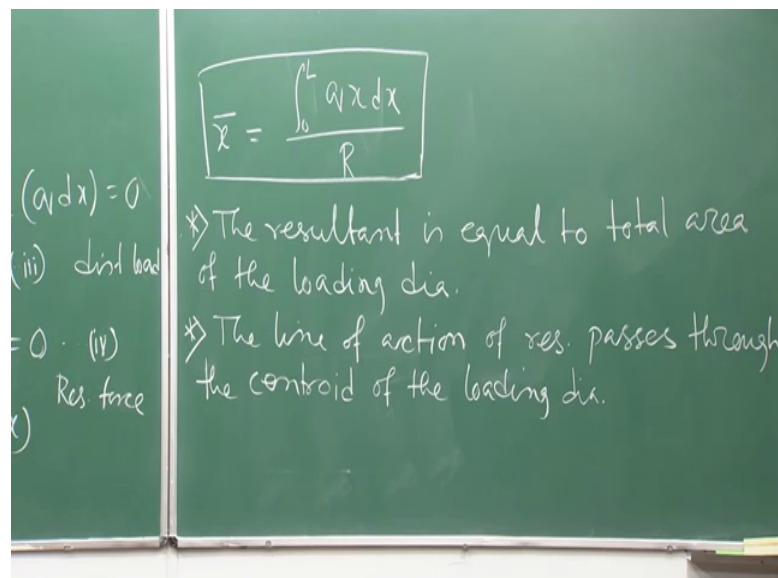 (q dx) = 0
(iii) dist load
= 0 .. (iv)
Res. force
x)
x̄ = ∫₀ᴸ q x dx / R
*) The resultant is equal to total area
of the loading dia.
*) The line of action of res. passes through
the centroid of the loading dia.